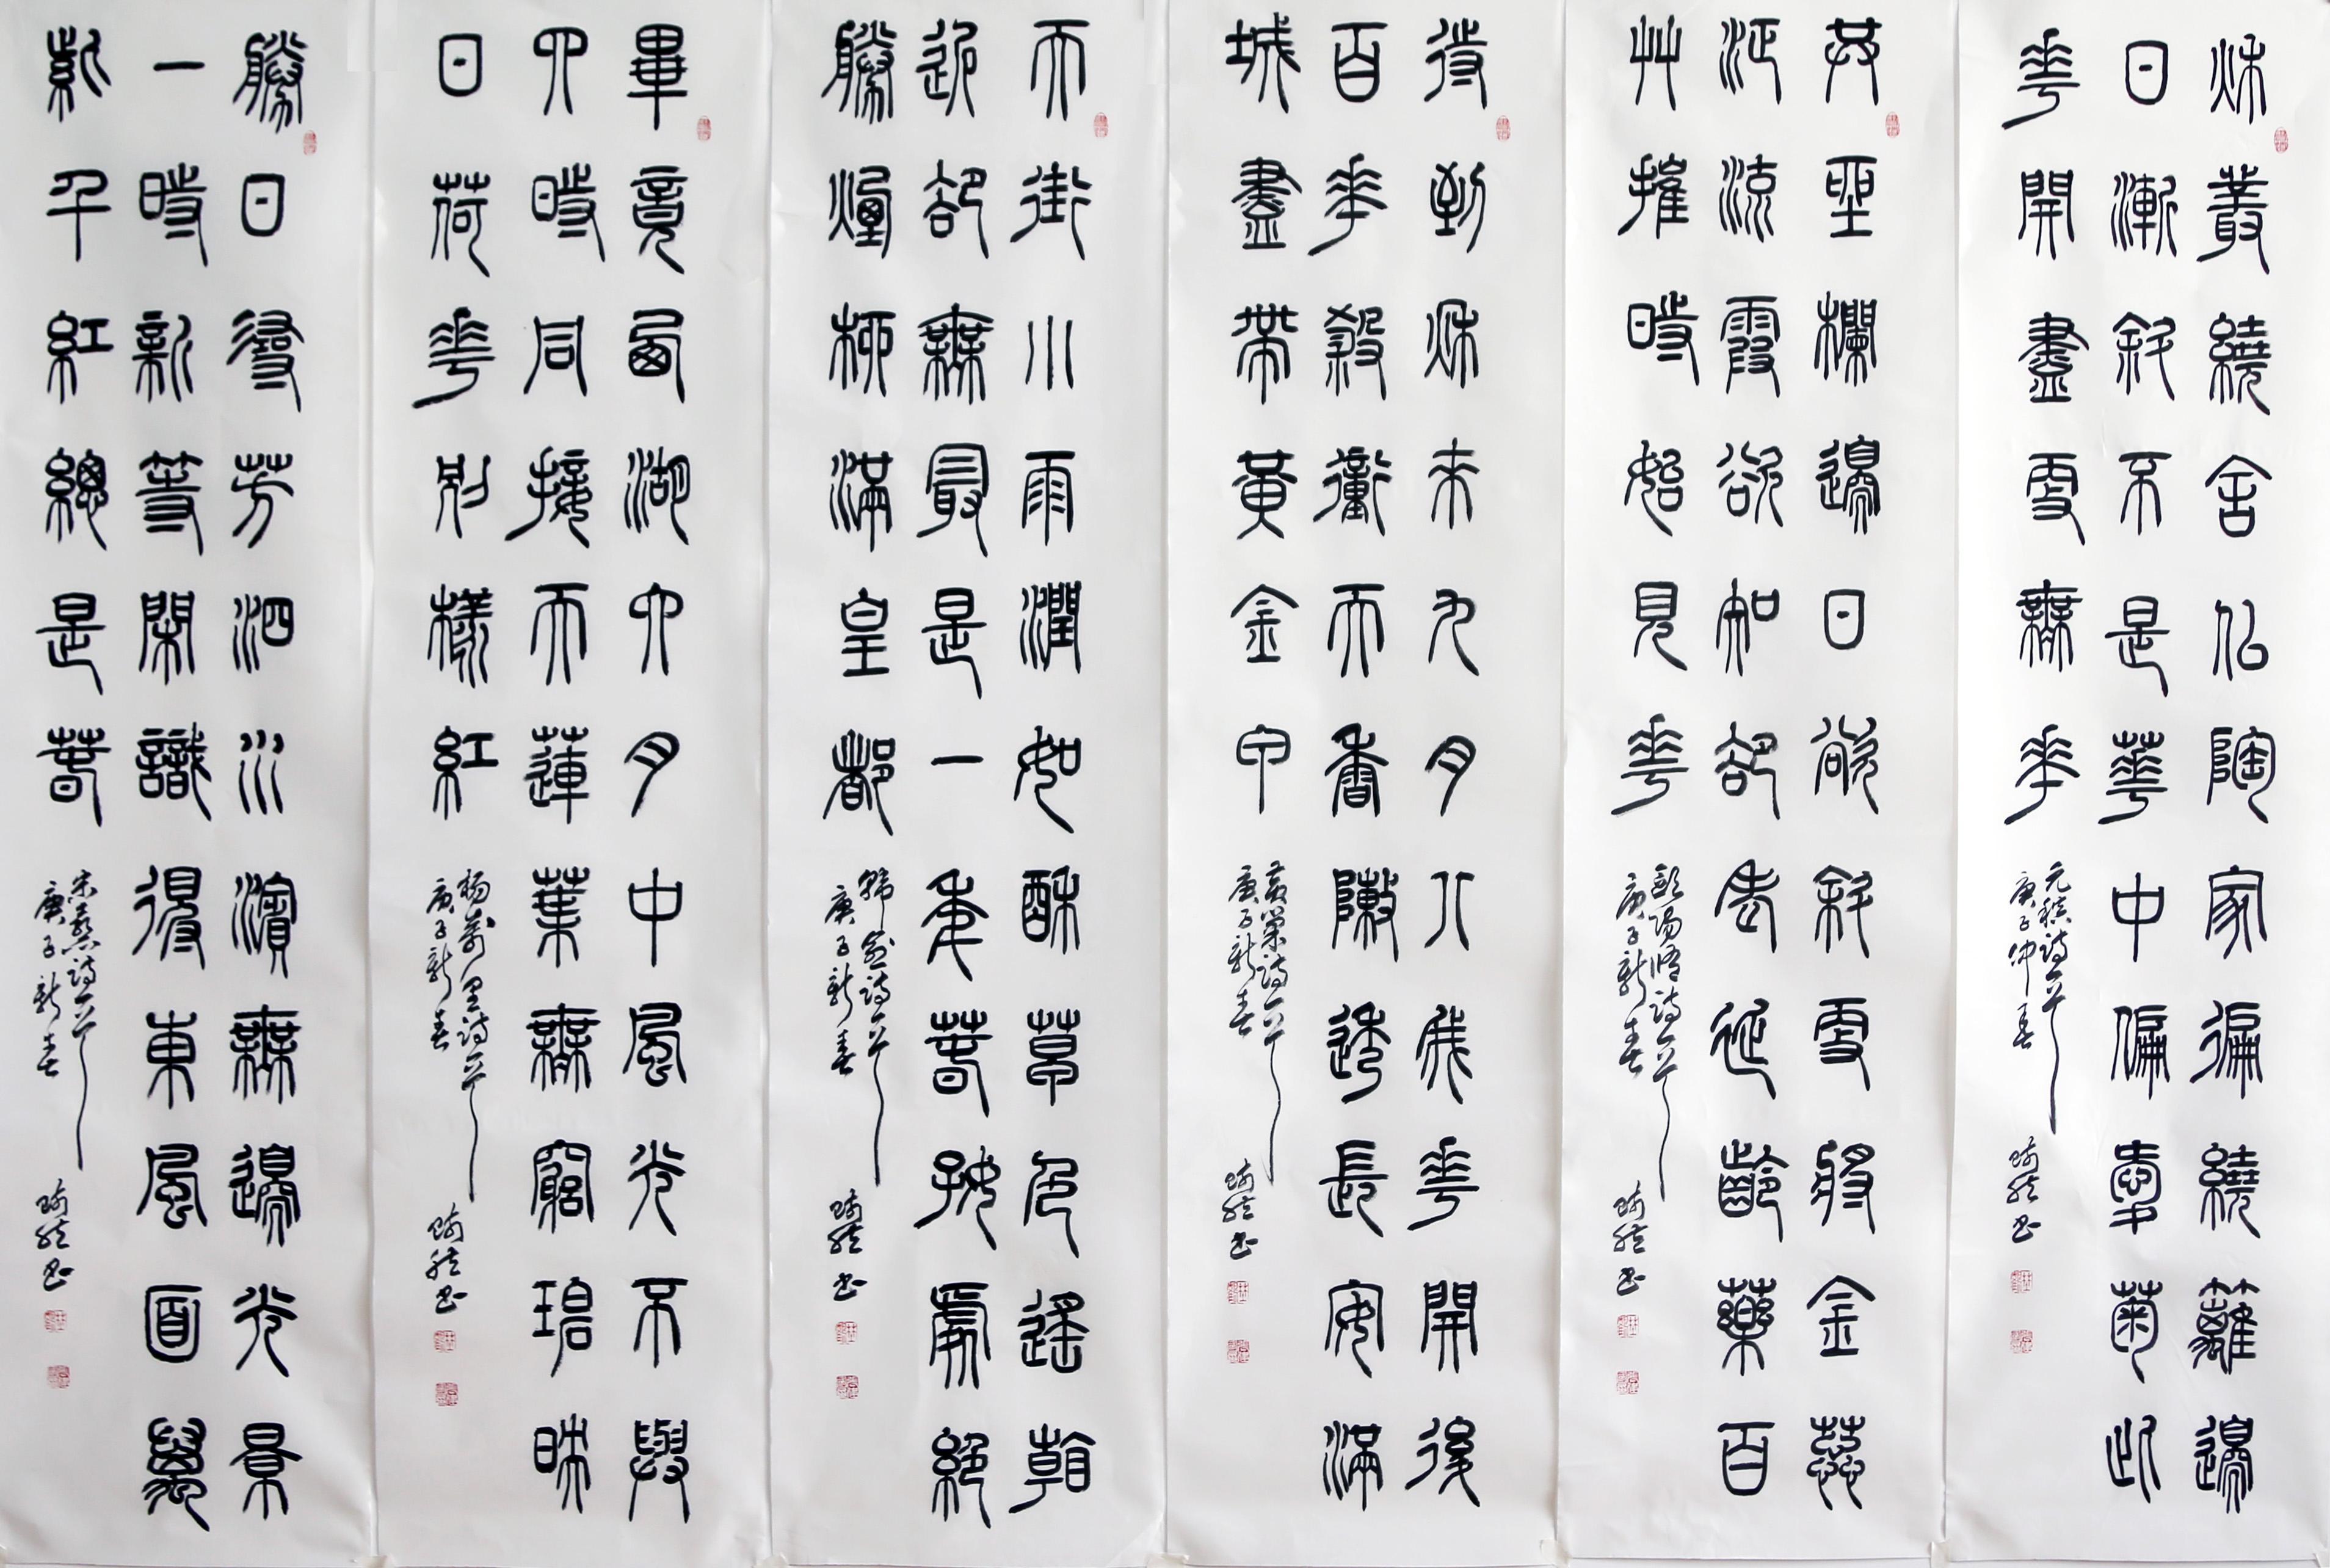 秋叢繞舍佀陶家徧繞籬邊
日漸斜不是華中偏愛菊此
花開盡更無花
元稹詩一首
庚子仲春
書
共坐欄邊日欲斜更將金蕊
泛流霞欲知卻老延齡藥百
艸摧時始見花
歐陽脩詩一首
庚子新春
書
待到秋來九月八我花開後
百花殺衝天香陣透長安滿
城盡帶黃金甲
黃巢詩一首
庚子新春
書
天街小雨潤如酥草色遙看
近卻無最是一年春好處絕
勝煙柳滿皇都
韓愈詩一首
庚子新春
書
畢竟西湖六月中風光不與
四時同接天蓮葉無窮碧映
日荷花別樣紅
楊萬里詩一首
庚子新春
書
勝日尋芳泗水濱無邊光景
一時新等閒識得東風面萬
紫千紅總是春
朱熹詩一首
庚子新春
書